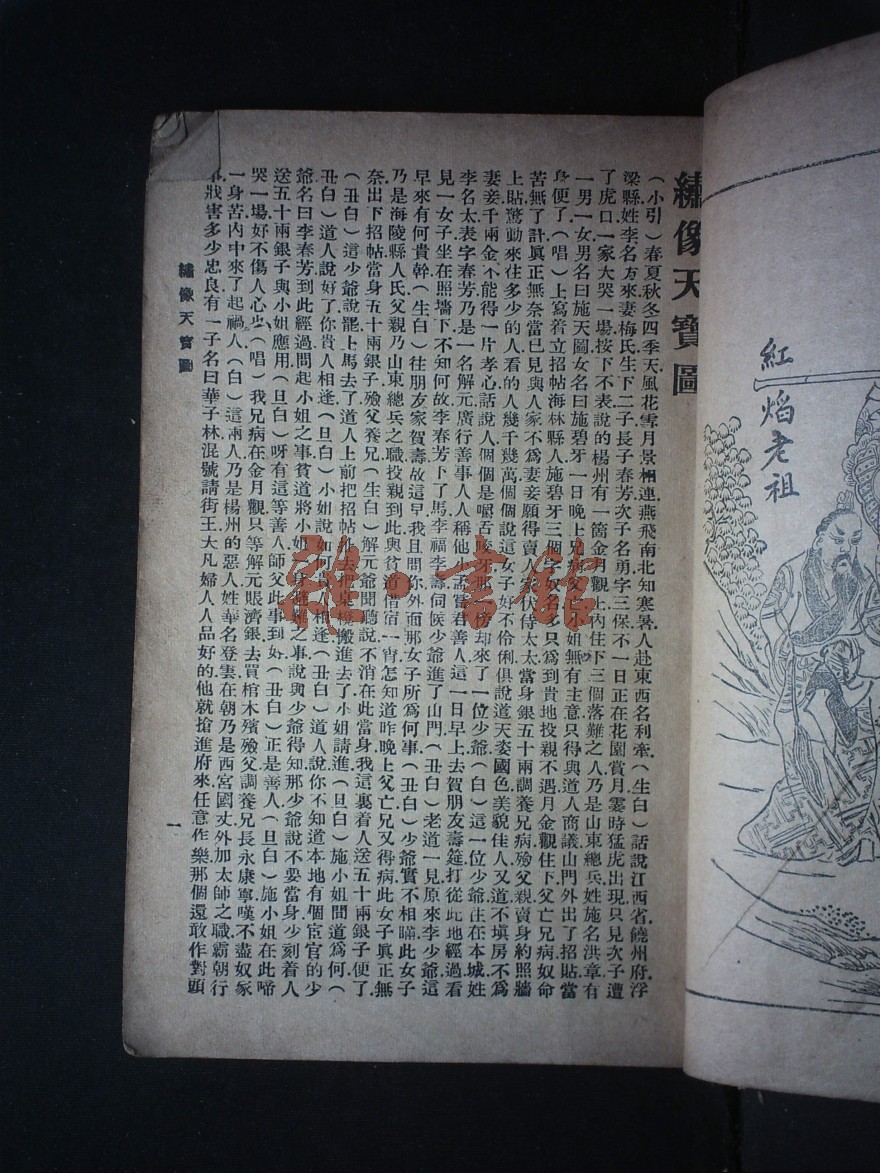 紅焰老祖
繡像天寶圖
（小引）春夏秋冬四季天風花雪月景相連燕飛南北知寒暑人赴東西名利牽（生白）話說江西省饒州府浮
梁縣姓李名方來妻梅氏生下二子長子春芳次子名勇字三保不一日正在花園賞月霎時猛虎出現只見次子遭
了虎口一家大哭一場按下不表說的楊州有一箇金月觀上內住下三個落難之人乃是山東總兵姓施名洪章有
一男一女男名曰施天圖女名曰施碧牙一日晚上兄病父亡小姐無有主意只得與道人商議山門外出了招貼當
身便了（唱）上寫着立招帖海林縣人施碧牙三個字奴名多只爲到貴地投親不遇月金觀住下父亡兄病奴命
苦無了計眞正無奈當已見與人家不爲妻妾願得賣人家伏侍太太當身銀五十兩調養兄病殮父親賣身約照牆
上貼驚動來往多少的人看的人幾千幾萬個個說這女子好不伶俐俱說道天姿國色美貌佳人又道不塡房不爲
妻妾千兩金不能得一片孝心話說人個個是嚼舌咬牙那傍却來了一位少爺（白）這一位少爺住在本城姓
李名太表字春芳乃是一名解元廣行善事人人稱他小孟嘗君善人這一日早上去賀朋友壽筵打從此地經過看
見一女子坐在照墻下不知何故李春芳下了馬李福李壽伺候少爺進了山門（丑白）老道一見原來李少爺這
早來有何貴幹（生白）往朋友家賀壽故這早我且問你外面那女子所爲何事（丑白）少爺實不相瞞此女子
乃是海陵縣人氏父親乃山東總兵之職投親到此與貧道借宿一宵怎知道昨晚上父亡兄又得病此女子眞正無
奈出下招帖當身五十兩銀子殮父養兄（生白）解元爺聞聽說不消在此當身我這裏着人送五十兩銀子便了
（丑白）這少爺說罷上馬去了道人上前把招帖扯去把桌櫈搬進去了小姐請進（旦白）施小姐問道爲何（
丑白）道人說好了你貴人相逢（旦白）小姐說如何貴人相逢（丑白）道人說你不知道本地有個宦官的少
爺名曰李春芳到此經過問起小姐之事貧道將小姐身遭難之事說與少爺得知那少爺說不要當身少刻着人
送五十兩銀子與小姐應用（旦白）呀有這等善人師父此事到好（丑白）正是善人（旦白）施小姐在此啼
哭一塲好不傷人心也（唱）我兄病在金月觀只等解元賬濟銀去買棺木殯殮父調養兄長永康寧嘆不盡奴家
一身苦內中來了起禍人（白）這兩人乃是楊州的惡人姓華名登雲在朝乃是西宮國丈外加太師之職霸朝行
事戕害多少忠良有一子名曰華子林混號請街王大凡婦人人品好的他就搶進府來任意作樂那個還敢作對頭
繡像天寶圖
一
雜·書館